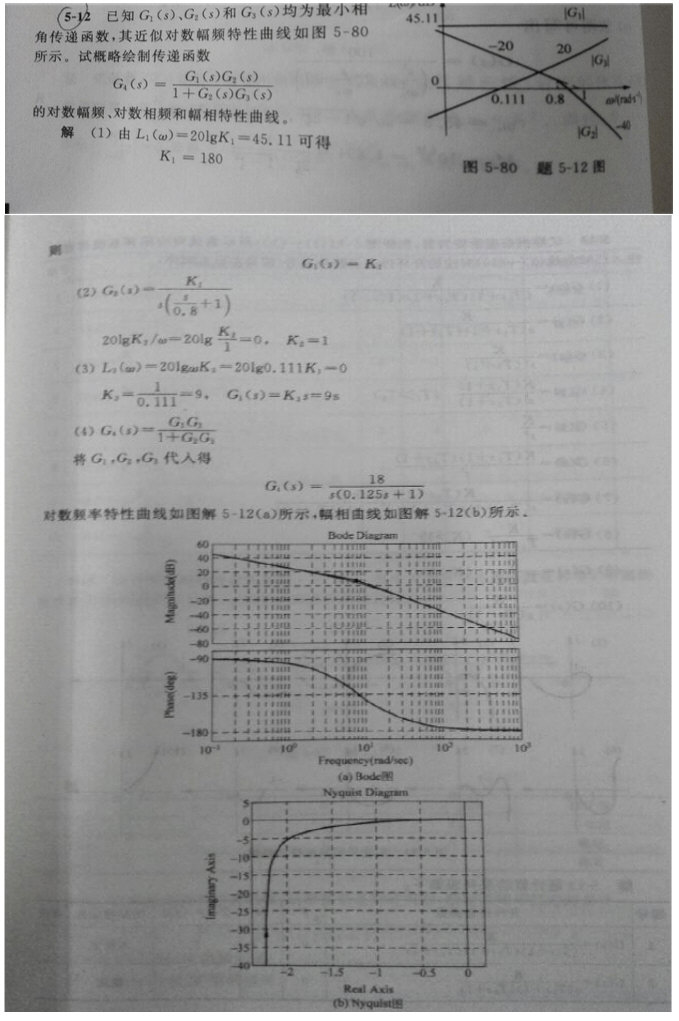 5-12 已知 G₁(s)、G₂(s)和 G₃(s)均为最小相
角传递函数,其近似对数幅频特性曲线如图 5-80
所示。试概略绘制传递函数
G₄(s) = G₁(s)G₂(s) / 1+G₂(s)G₃(s)
的对数幅频、对数相频和幅相特性曲线。
解 (1) 由 L₁(ω)=20lgK₁=45.11 可得
K₁ = 180
45.11
|G₁|
-20
20
|G₃|
0
0.111
0.8
1
ω/(rad·s⁻¹)
-40
|G₂|
图 5-80 题 5-12 图
则
G₁(s) = K₁
(2) G₂(s)= K₂ / s(s/0.8+1)
20lgK₂/ω=20lg K₂/1=0, K₂=1
(3) L₃(ω)=20lgωK₃=20lg0.111K₃=0
K₃= 1/0.111 =9, G₃(s)=K₃s=9s
(4) G₄(s)= G₁G₂ / 1+G₂G₃
将 G₁,G₂,G₃ 代入得
G₄(s) = 18 / s(0.125s+1)
对数频率特性曲线如图解 5-12(a)所示,幅相曲线如图解 5-12(b)所示.
Bode Diagram
Magnitude(dB)
60
40
20
0
-20
-40
-60
-80
Phase(deg)
-90
-135
-180
10⁻¹
10⁰
10¹
10²
10³
Frequency(rad/sec)
(a) Bode图
Nyquist Diagram
Imaginary Axis
5
0
-5
-10
-15
-20
-25
-30
-35
-40
-2
-1.5
-1
-0.5
0
Real Axis
(b) Nyquist图